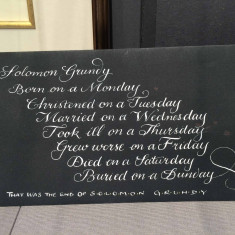 Solomon Gruney
Born on a Monday
Christened on a Tuesday
Married on a Wednesday
Took ill on a Thursday
Grew worse on a Friday
Died on a Saturday
Buried on a Sunday
THAT WAS THE END OF SOLOMON GRUNDY